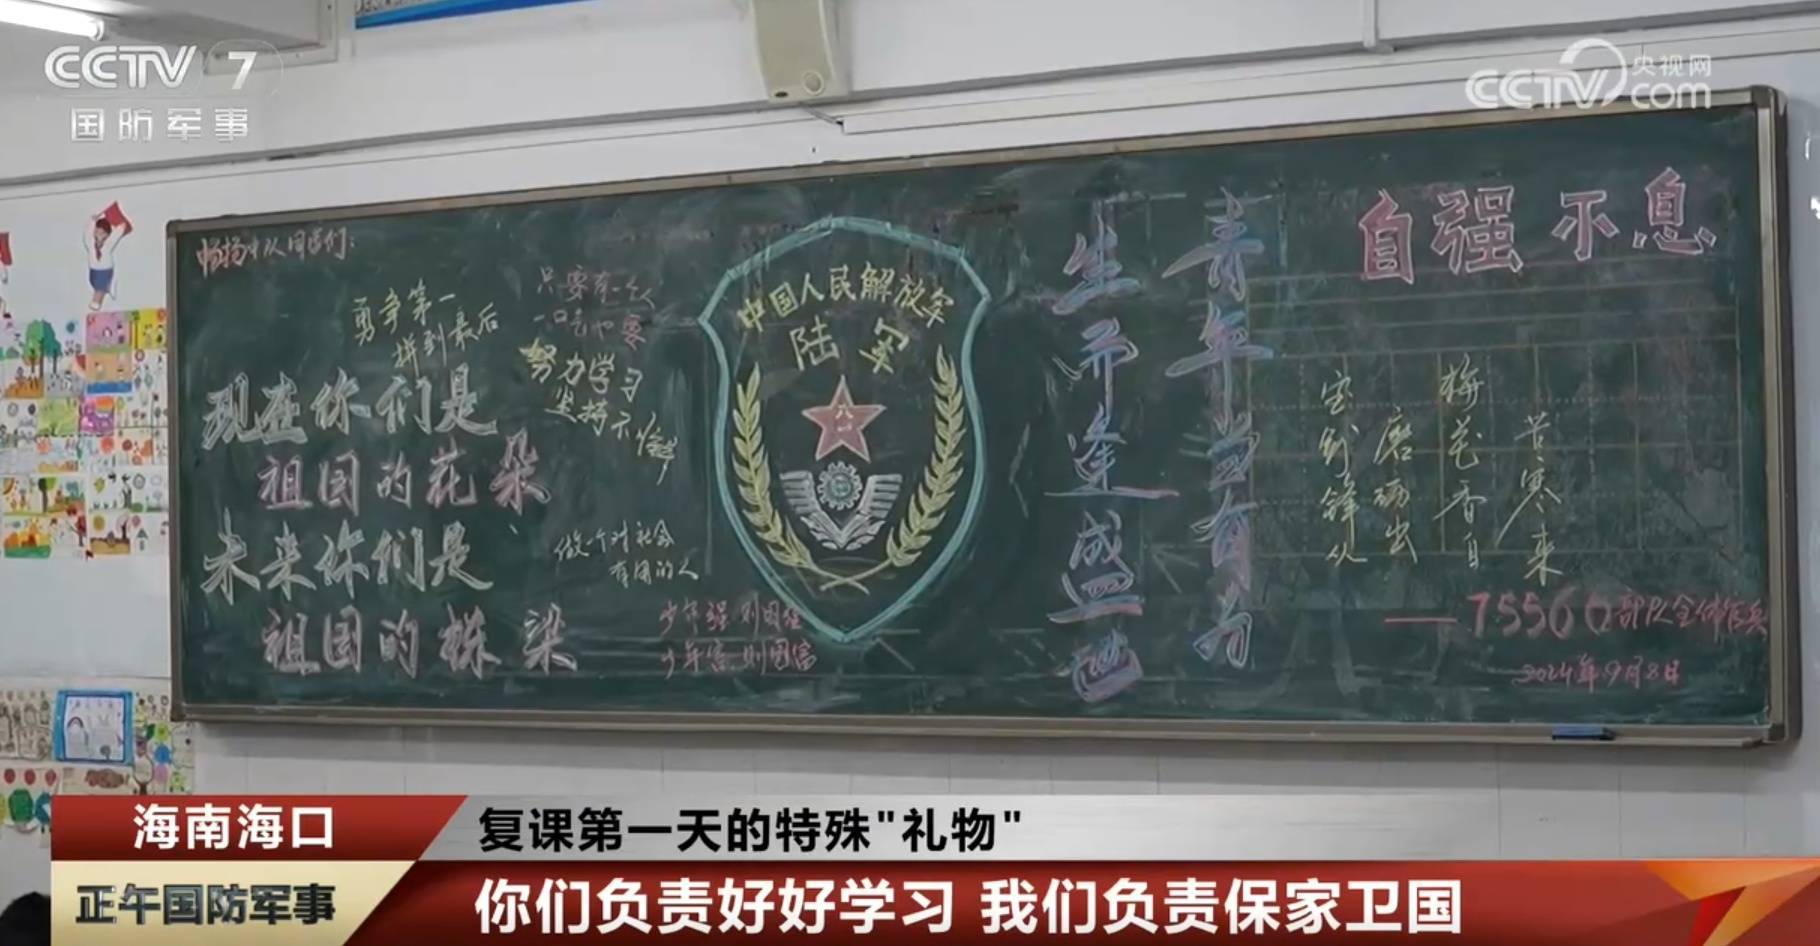 CCTV 7
国防军事
央视网
CCTV.com
畅扬中队同学们：
勇争第一
拼到最后
只要有一个人
一口气也要
努力学习
坚持不懈
现在你们是
祖国的花朵
未来你们是
祖国的栋梁
做一个对社会
有用的人
少年强 则国强
少年富 则国富
中国人民解放军
陆军
八一
青年当有为
生而逢盛世
自强不息
宝剑锋从
磨砺出
梅花香自
苦寒来
——75560部队全体官兵
2024年9月8日
海南海口
复课第一天的特殊"礼物"
正午国防军事
你们负责好好学习 我们负责保家卫国